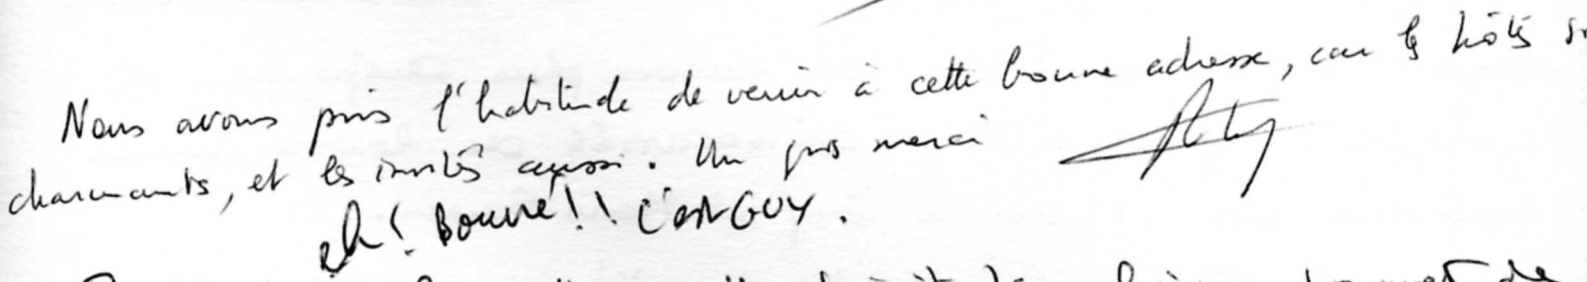 Nous avons pris l'habitude de venir à cette bonne adresse, car les hôtes
charmants, et les invités aussi. Un gros merci
eh! Bourré!! C'est GUY.